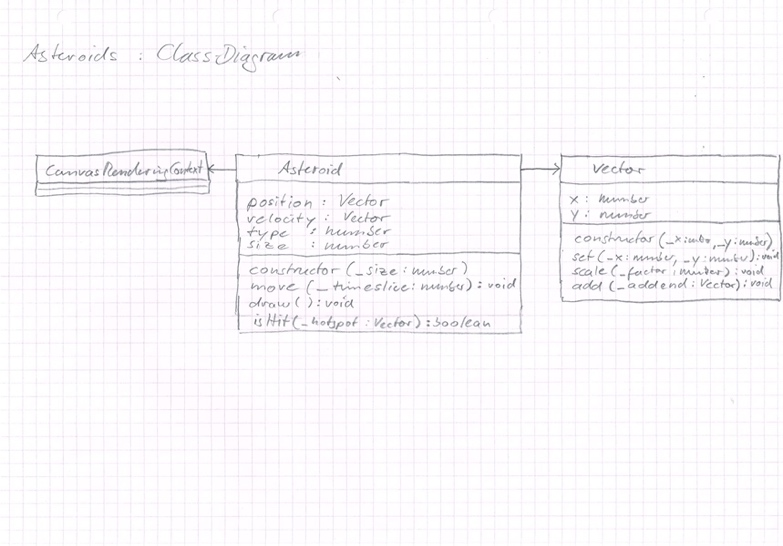 Asteroids : ClassDiagram
CanvasRenderingContext
Asteroid
position : Vector
velocity : Vector
type : number
size : number
constructor (_size : number)
move (_timeslice : number) : void
draw () : void
isHit (_hotspot : Vector) : boolean
Vector
x : number
y : number
constructor (_x : number, _y : number)
set (_x : number, _y : number) : void
scale (_factor : number) : void
add (_addend : Vector) : void